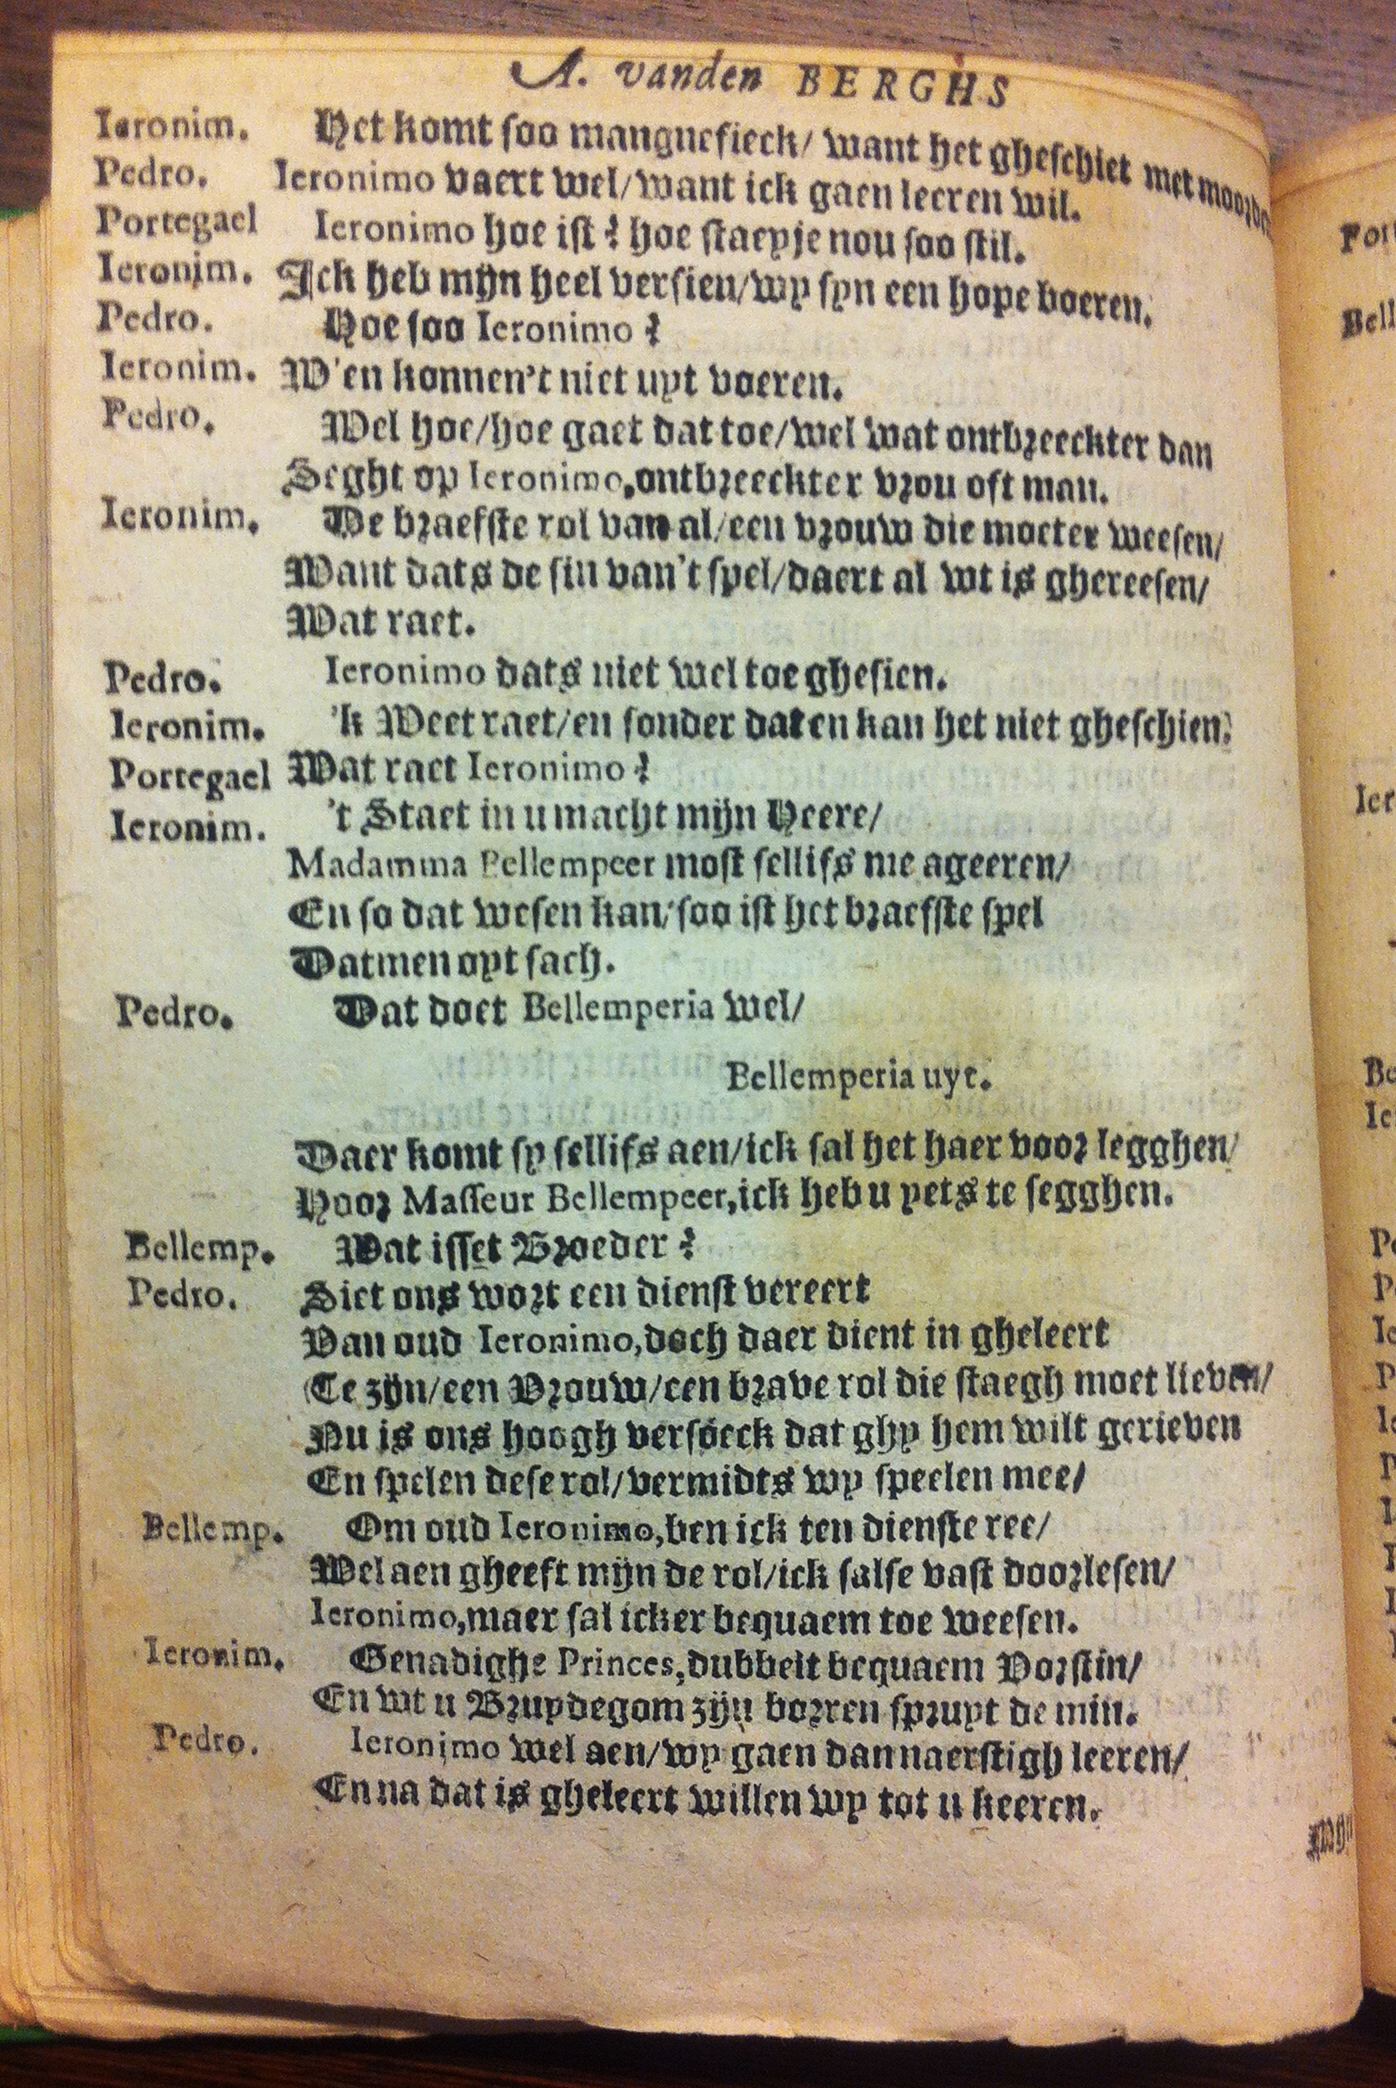 A. vanden BERGHS
Ieronim. Het komt soo mangnefieck/ want het gheschiet met
Pedro. Ieronimo vaert wel/want ick gaen leeren wil.
Portegael Ieronimo hoe ist? hoe staepje nou soo stil.
Ieronim. Ick heb mijn heel versien/wy syn een hope boeren.
Pedro. Hoe soo Ieronimo?
Ieronim. W'en konnen't niet uyt voeren.
Pedro. Wel hoe/hoe gaet dat toe/wel wat ontbreeckter dan
Seght op Ieronimo,ontbreeckter vrou oft man.
Ieronim. De braefste rol van al/een vrouw die moeter weesen/
Want dats de sin van't spel/daert al wt is ghereesen/
Wat raet.
Pedro. Ieronimo dats niet wel toe ghesien.
Ieronim. 'k Weet raet/en sonder dat en kan het niet gheschien.
Portegael Wat raet Ieronimo?
Ieronim. 't Staet in u macht mijn Heere/
Madamma Bellempeer most sellifs me ageeren/
En so dat wesen kan/soo ist het braefste spel
Datmen oyt sach.
Pedro. Dat doet Bellemperia wel/
Bellemperia uyt.
Daer komt sy sellifs aen/ick sal het haer voor legghen/
Hoor Masseur Bellempeer,ick heb u yets te segghen.
Bellemp. Wat isset Broeder?
Pedro. Siet ons wort een dienst vereert
Van oud Ieronimo,doch daer dient in gheleert
Te zijn/een Vrouw/een brave rol die staegh moet lieven/
Nu is ons hoogh versoeck dat ghy hem wilt gerieven
En spelen dese rol/vermidts wy speelen mee/
Bellemp. Om oud Ieronimo,ben ick ten dienste ree/
Wel aen gheeft mijn de rol/ick salse vast doorlesen/
Ieronimo,maer sal icker bequaem toe weesen.
Ieronim. Genadighe Princes,dubbelt bequaem Vorstin/
En wt u Bruydegom zijn borren spruyt de min.
Pedro. Ieronimo wel aen/wy gaen dan naerstigh leeren/
En na dat is gheleert willen wy tot u keeren.